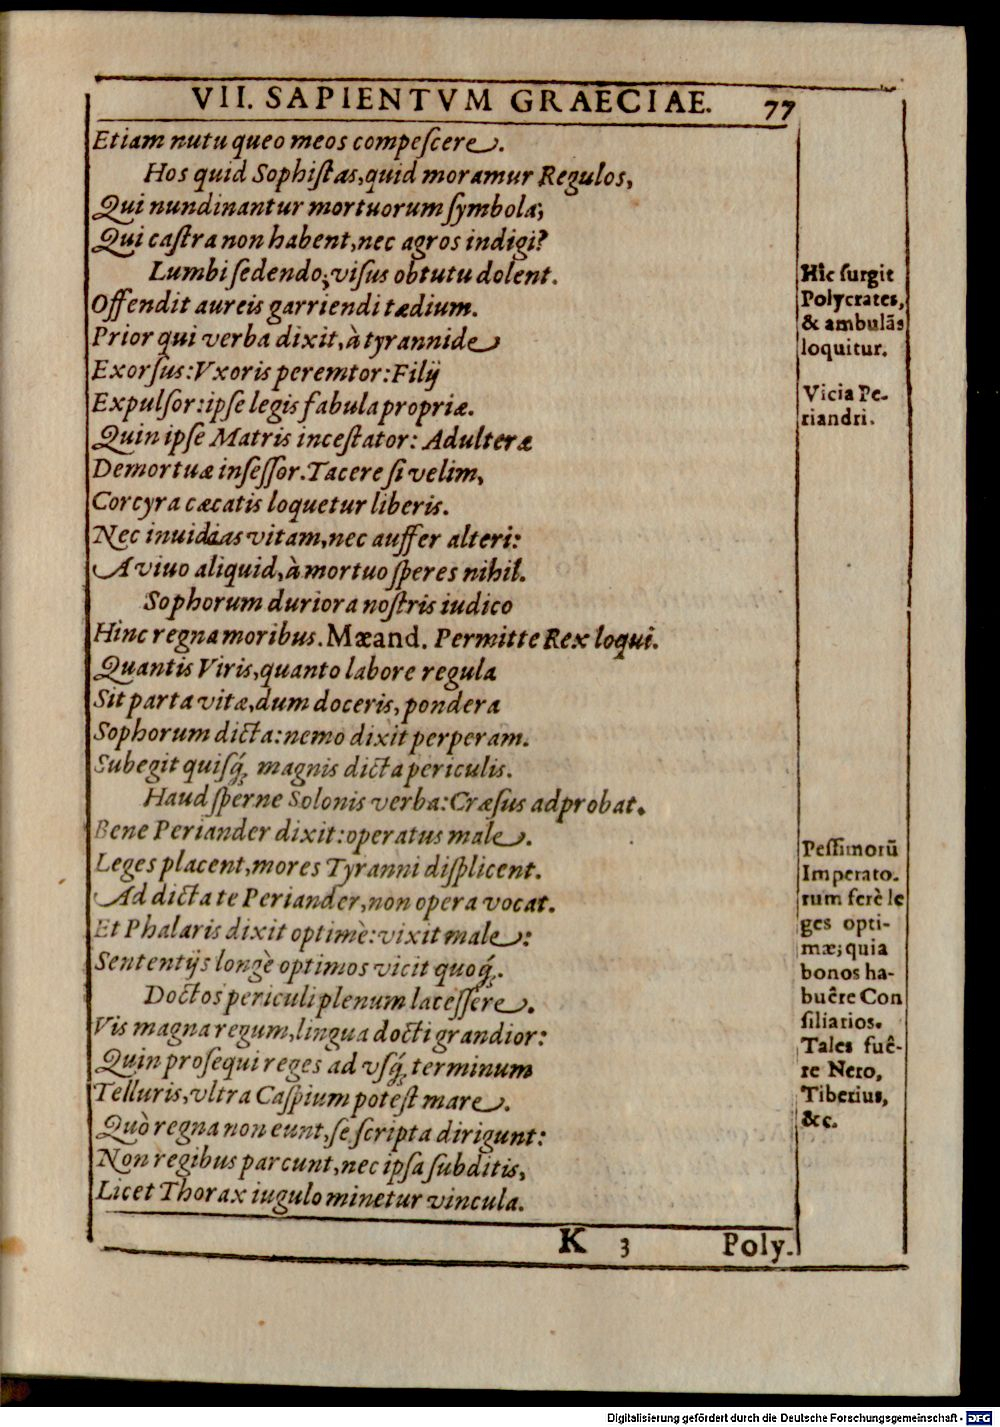 VII. SAPIENTVM GRAECIAE. 77
Etiam nutu queo meos compeſcere.
Hos quid Sophiſtas, quid moramur Regulos,
Qui nundinantur mortuorum ſymbola;
Qui caſtra non habent, nec agros indigi?
Lumbi ſedendo; viſus obtutu dolent.
Offendit aureis garriendi tædium.
Prior qui verba dixit, à tyrannide
Exorſus: Vxoris peremtor: Filij
Expulſor: ipſe legis fabula propriæ.
Quin ipſe Matris inceſtator: Adulteræ
Demortuæ inſeſſor. Tacere ſi velim,
Corcyra cæcatis loquetur liberis.
Nec inuideas vitam, nec auffer alteri:
A viuo aliquid, à mortuo ſperes nihil.
Sophorum duriora noſtris iudico
Hinc regna moribus. Mæand. Permitte Rex loqui.
Quantis Viris, quanto labore regula
Sit parta vitæ, dum doceris, pondera
Sophorum dicta: nemo dixit perperam.
Subegit quiſq́; magnis dicta periculis.
Haud ſperne Solonis verba: Cræſus adprobat.
Bene Periander dixit: operatus male.
Leges placent, mores Tyranni diſplicent.
Ad dicta te Periander, non opera vocat.
Et Phalaris dixit optimè: vixit male:
Sententijs longè optimos vicit quoq́;.
Doctos periculi plenum laceſſere.
Vis magna regum, lingua docti grandior:
Quin proſequi reges ad vſq́; terminum
Telluris, vltra Caſpium poteſt mare.
Quò regna non eunt, ſe ſcripta dirigunt:
Non regibus parcunt, nec ipſa ſubditis,
Licet Thorax iugulo minetur vincula.
Hic ſurgit
Polycrates,
& ambulãs
loquitur.
Vicia Pe-
riandri.
Peſſimorũ
Imperato-
rum ferè le
ges opti-
mæ; quia
bonos ha-
buêre Con
ſiliarios.
Tales fuê-
re Nero,
Tiberius,
&c.
K 3 Poly.
Digitalisierung gefördert durch die Deutsche Forschungsgemeinschaft - DFG